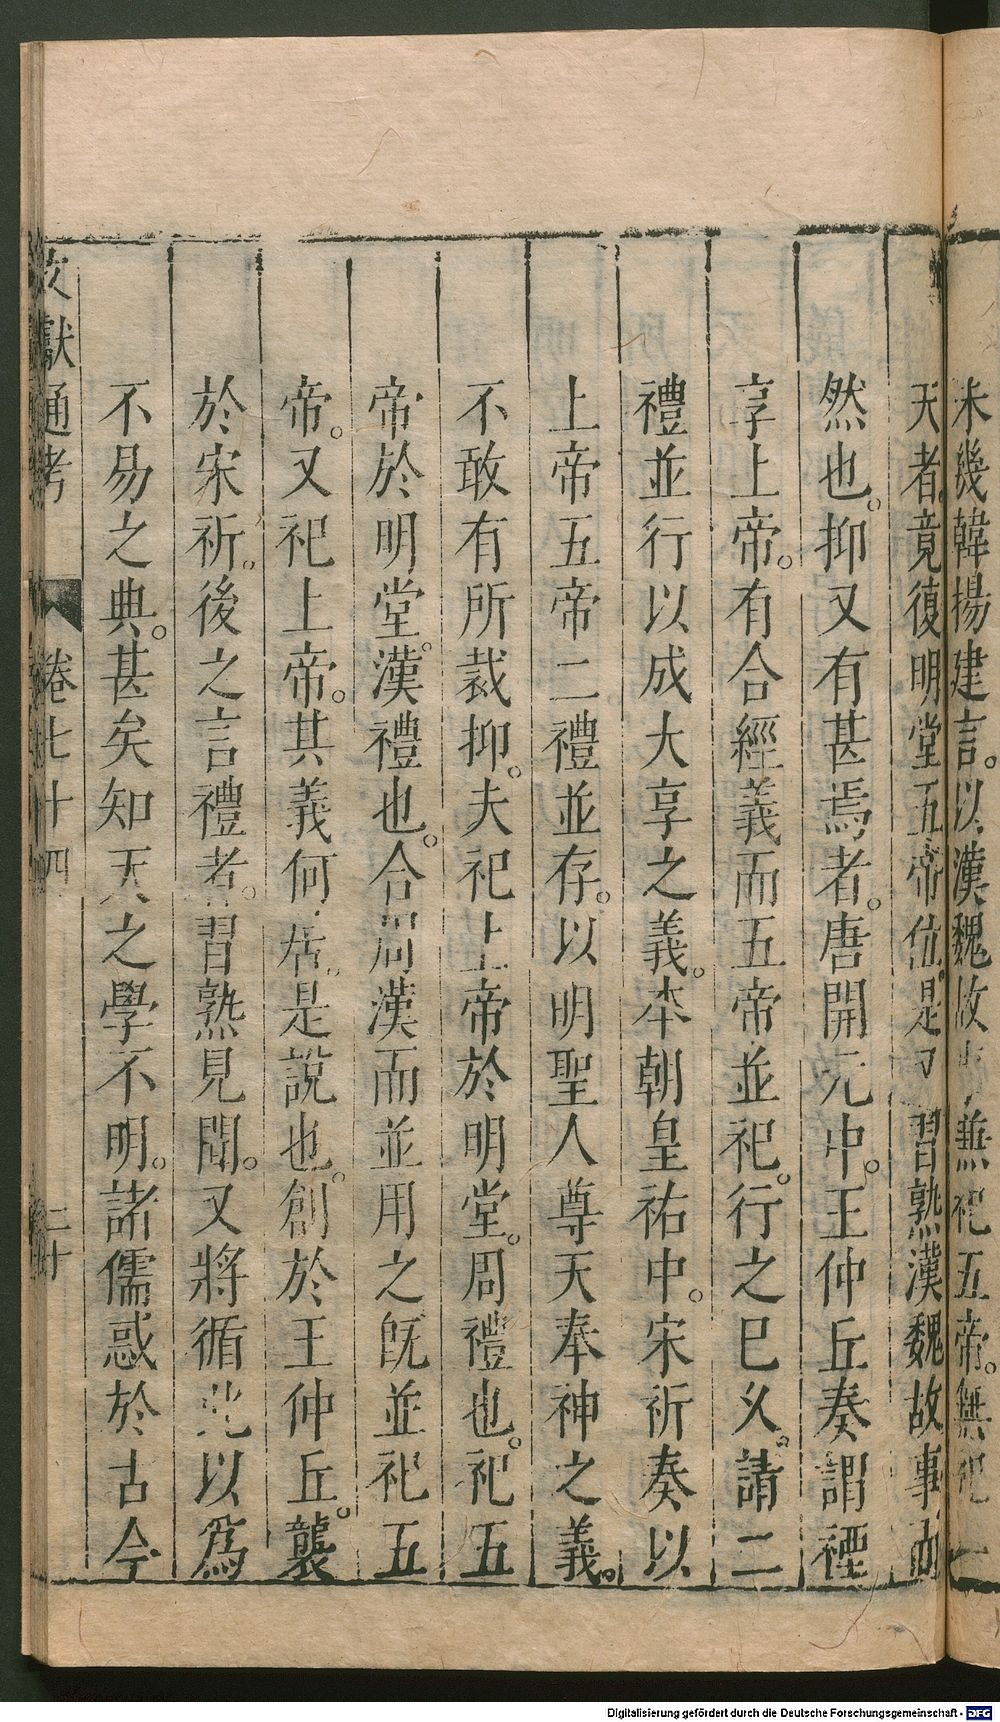 未幾韓揚建言。以漢魏故事無祀五帝。無祀
天者。竟復明堂五帝位。是習熟漢魏故事而
然也。抑又有甚焉者。唐開元中。王仲丘奏謂禋
享上帝。有合經義而五帝並祀。行之已久。請二
禮並行以成大享之義。本朝皇祐中。宋祈奏以
上帝五帝二禮並存。以明聖人尊天奉神之義。
不敢有所裁抑。夫祀上帝於明堂。周禮也。祀五
帝於明堂。漢禮也。合周漢而並用之既並祀五
帝。又祀上帝。其義何居。是說也。創於王仲丘。襲
於宋祈。後之言禮者。習熟見聞。又將循此以爲
不易之典。甚矣知天之學不明。諸儒惑於古今
文獻通考 卷七十四 二十
Digitalisierung gefördert durch die Deutsche Forschungsgemeinschaft - DFG